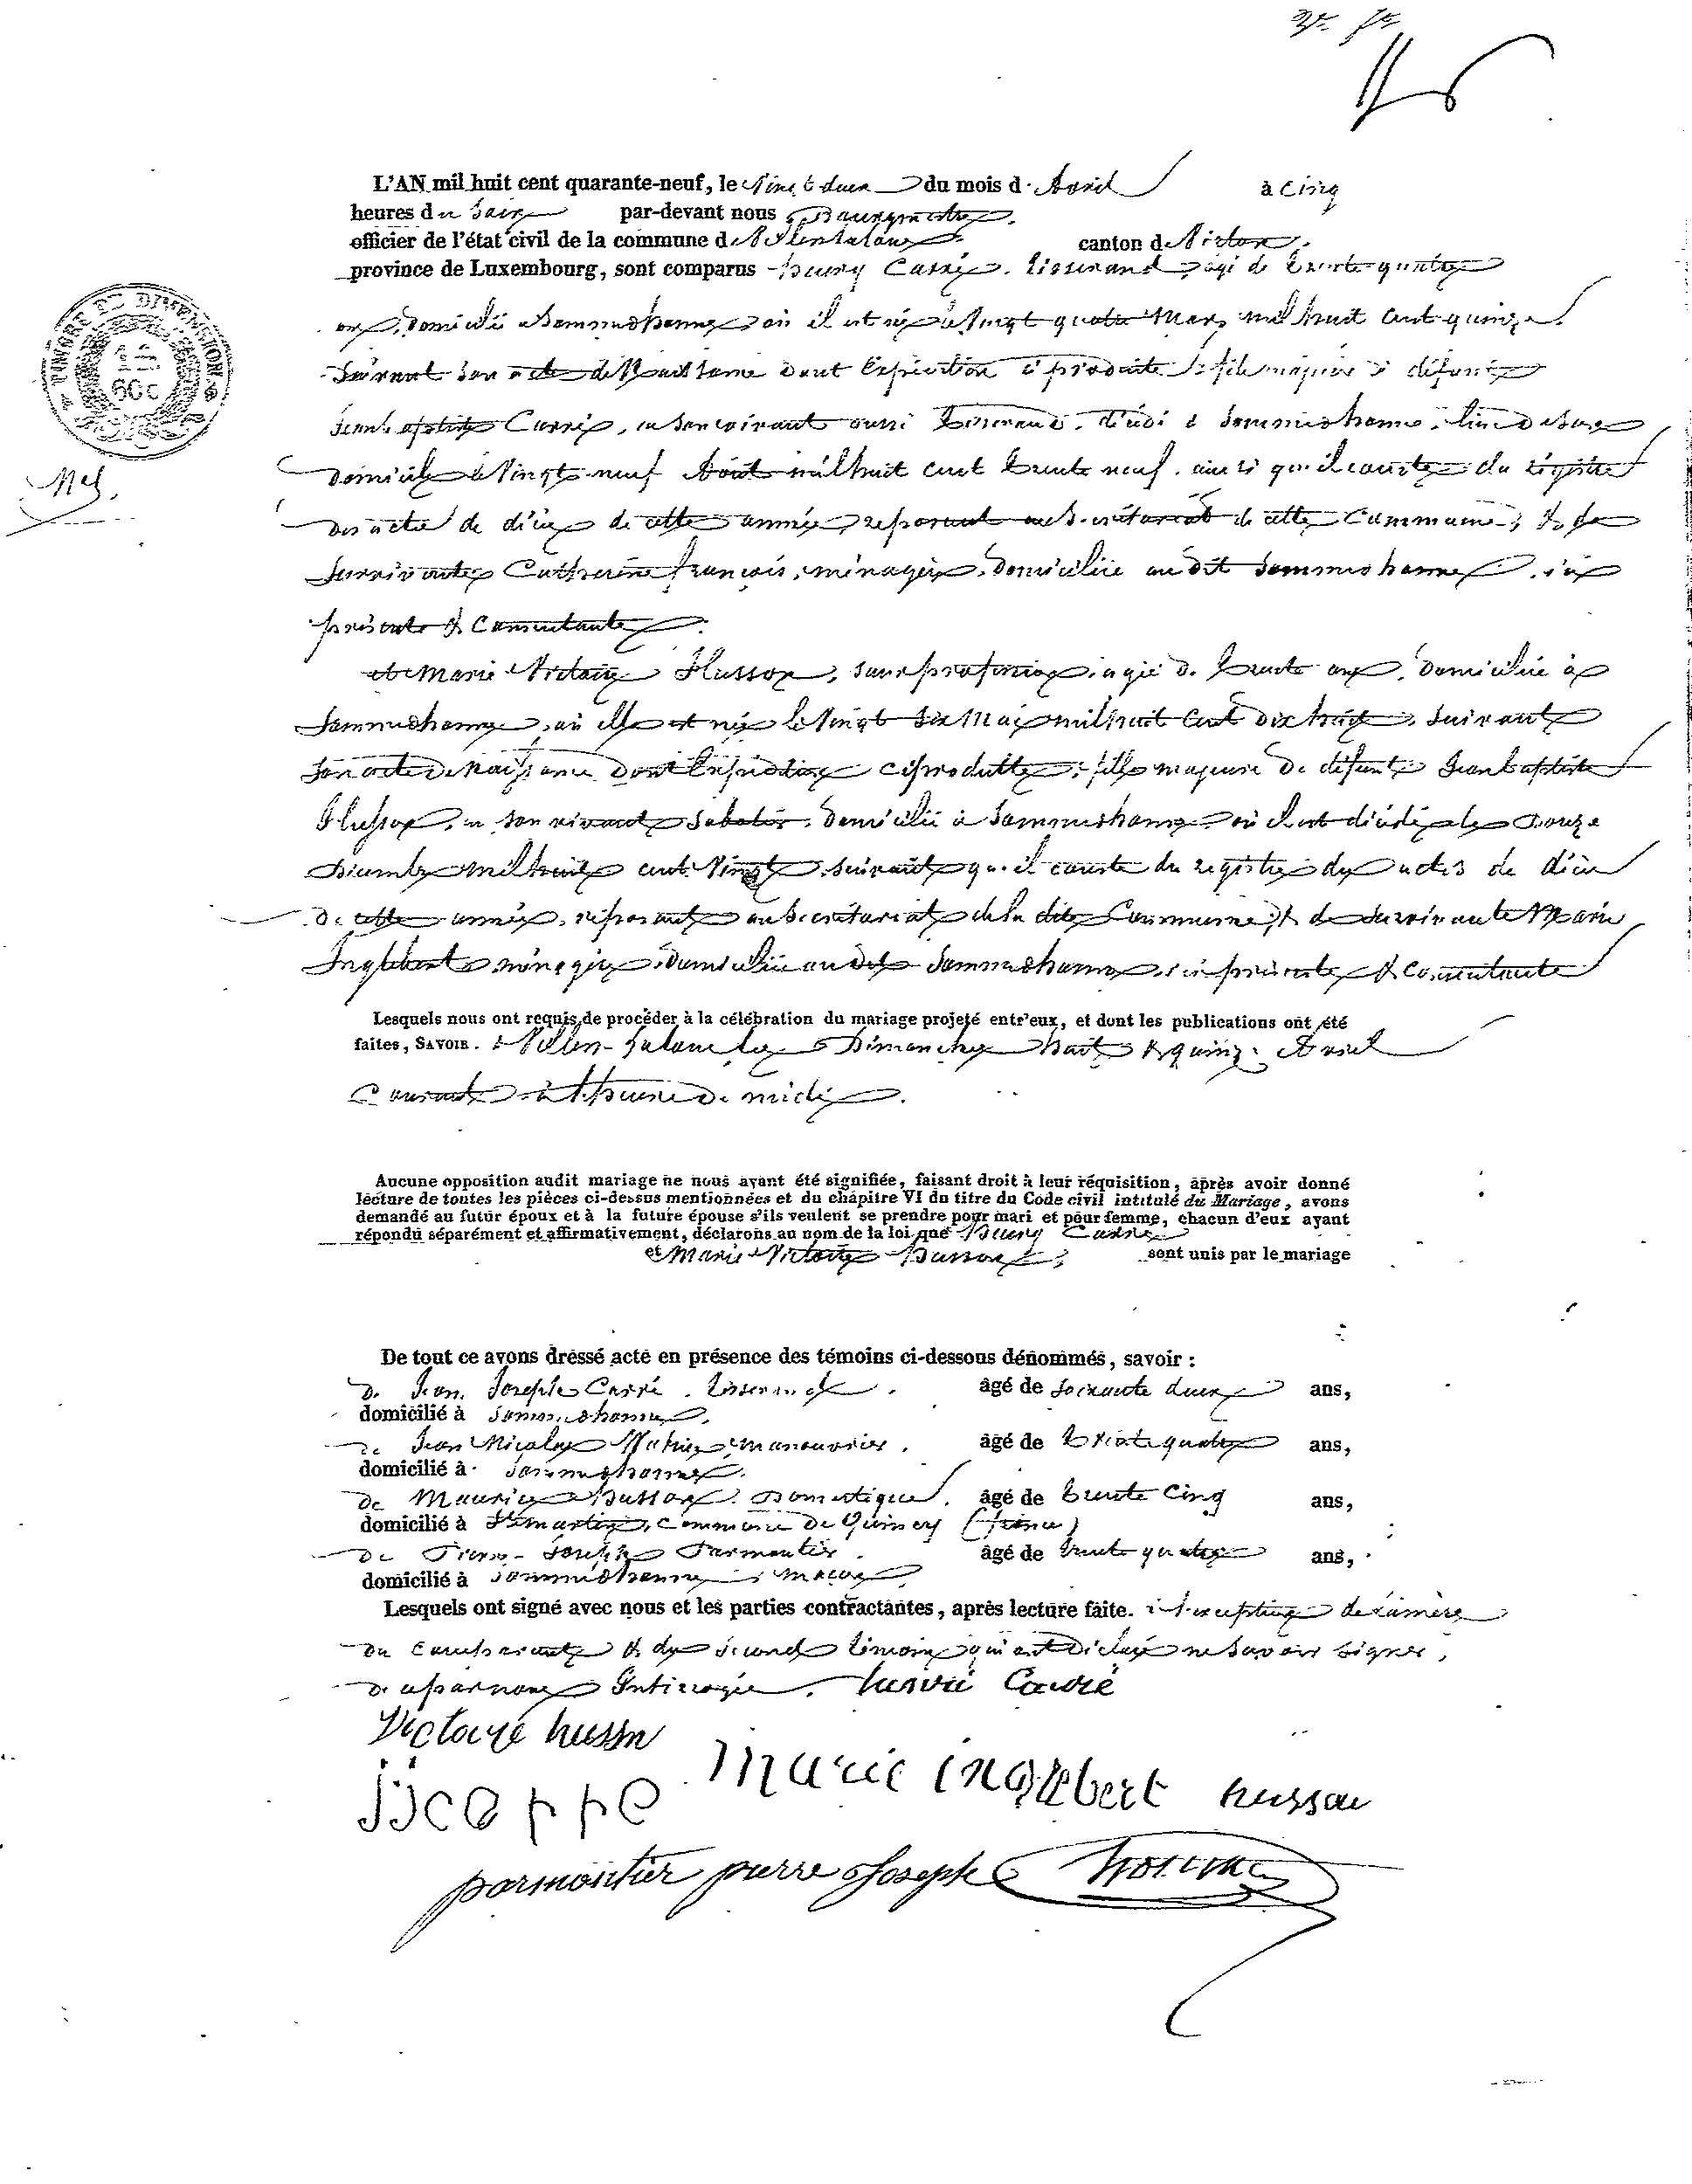 TIMBRE DE DIMENSION
60c
L'AN mil huit cent quarante-neuf, le Vingt deux du mois d' Avril à cinq
heures du Soir par-devant nous Bourgmestre
officier de l'état civil de la commune de Villers-la-loue canton de Virton
province de Luxembourg, sont comparus henry Carré, tisserand, agé de trente quatre
ans, domicilié a Sommethonne, où il est né le Vingt quatre Mars mil huit cent quinze
Suivant son acte de Naissance dont l'expédition ci produite, fils majeur de défunt
Jean baptiste Carré, en son vivant aussi tisserand, décédé à Sommethonne, lieu de son
domicile le Vingt neuf Août mil huit cent trente neuf, ainsi qu'il conste du registre
des actes de décès de cette année, reposant au Secrétariat de cette Commune, & de
Survivante Catherine françois, ménagère, domiciliée au dit Sommethonne, ici
présente & Consentante.
et Marie Victoire Husson, sans profession, agée de trente ans, domiciliée à
Sommethonne, où elle est née le Vingt Six Mai mil huit Cent dix huit, suivant
son acte de Naissance dont l'expédition ci produite, fille majeure de défunt Jean baptiste
Husson, en son vivant Sabotier, domicilié à Sommethonne où il est décédé le douze
Décembre mil huit cent Vingt, suivant qu'il conste du registre des actes de décès
de cette année, reposant au Secrétariat de la dite Commune & de Survivante Marie
Inglebert, ménagère, domiciliée au dit Sommethonne, ici présente & consentante
Lesquels nous ont requis de procéder à la célébration du mariage projeté entr'eux, et dont les publications ont été
faites, SAVOIR. à Villers-la-loue les Dimanches huit & quinze Avril
Courant à l'heure de midi.
Aucune opposition audit mariage ne nous ayant été signifiée, faisant droit à leur réquisition, après avoir donné
lecture de toutes les pièces ci-dessus mentionnées et du chapitre VI du titre du Code civil intitulé du Mariage, avons
demandé au futur époux et à la future épouse s'ils veulent se prendre pour mari et pour femme, chacun d'eux ayant
répondu séparément et affirmativement, déclarons au nom de la loi que Henry Carré
et Marie Victoire Husson, sont unis par le mariage
De tout ce avons dressé acte en présence des témoins ci-dessous dénommés, savoir :
de Jean Joseph Carré, tisserand, âgé de soixante deux ans,
domicilié à Sommethonne,
de Jean Nicolas manouvrier, âgé de trente quatre ans,
domicilié à Sommethonne.
de Maurice Husson, Domestique, âgé de trente Cinq ans,
domicilié à St martin, commune de (france)
de Pierre Joseph Parmentier âgé de trente quatre ans,
domicilié à Sommethonne, maçon
Lesquels ont signé avec nous et les parties contractantes, après lecture faite. à l'exception de la mère
du comparant & du second témoin qui ont déclaré ne savoir signer,
de ce par nous Interrogés. henri Carré
Victoire husson
jjcarre Marie inglebert husson
parmentier pierre Joseph